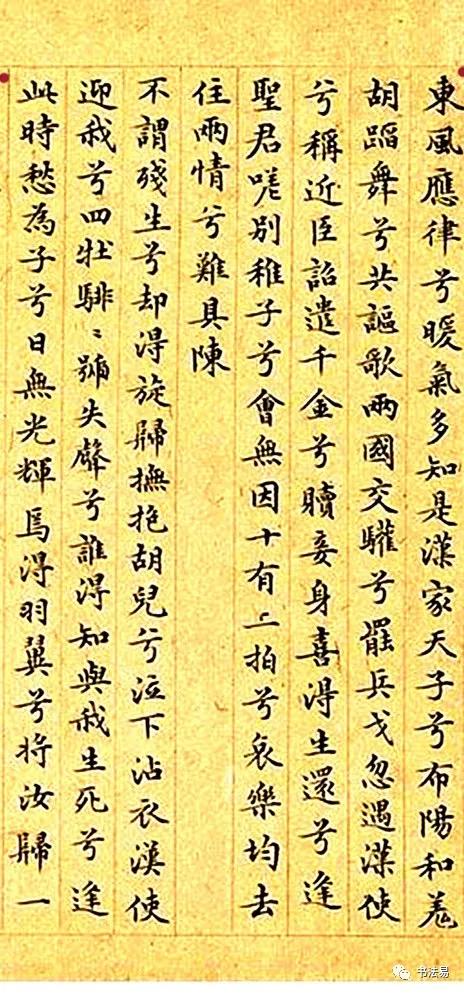 東風應律兮暖氣多知是漢家天子兮布陽和羌
胡蹈舞兮共謳歌兩國交驩兮罷兵戈忽遇漢使
兮稱近臣詔遣千金兮贖妾身喜得生還兮逢
聖君嗟別稚子兮會無因十有二拍兮哀樂均去
住兩情兮難具陳
不謂殘生兮却得旋歸撫抱胡兒兮泣下沾衣漢使
迎我兮四牡騑〻號失聲兮誰得知與我生死兮逢
此時愁為子兮日無光輝焉得羽翼兮將汝歸一
书法易